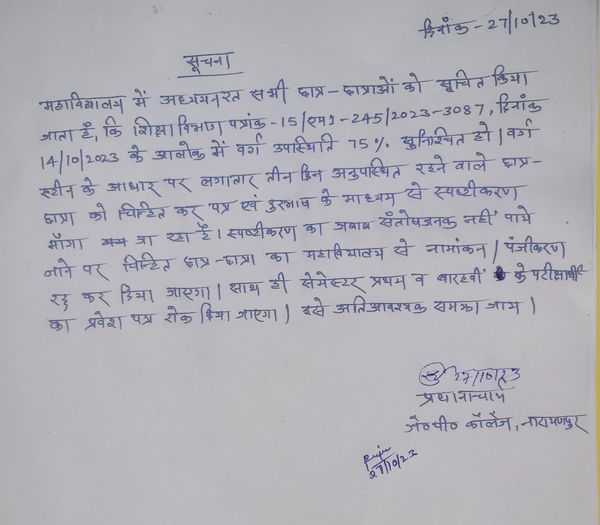 दिनाँक - 27/10/23
सूचना
महाविद्यालय में अध्ययनरत सभी छात्र-छात्राओं को सूचित किया
जाता है, कि शिक्षा विभाग पत्रांक - 15/एम1-245/2023-3087, दिनांक
14/10/2023 के आलोक में वर्ग उपस्थिति 75% सुनिश्चित हो। वर्ग
रूटीन के आधार पर लगातार तीन दिन अनुपस्थित रहने वाले छात्र-
छात्रा को चिन्हित कर पत्र एवं दुरभाष के माध्यम से स्पष्टीकरण
माँगा जा रहा है। स्पष्टीकरण का जबाब संतोषजनक नहीं पाये
जाने पर चिन्हित छात्र-छात्रा का महाविद्यालय से नामांकन/पंजीकरण
रद्द कर दिया जाएगा। साथ ही सेमेस्टर प्रथम व बारहवीं के परीक्षार्थी
का प्रवेश पत्र रोक दिया जाएगा। इसे अतिआवश्यक समझा जाय।
27/10/23
प्रधानाचार्य
जे०पी० कॉलेज, नारायणपुर
27/10/23